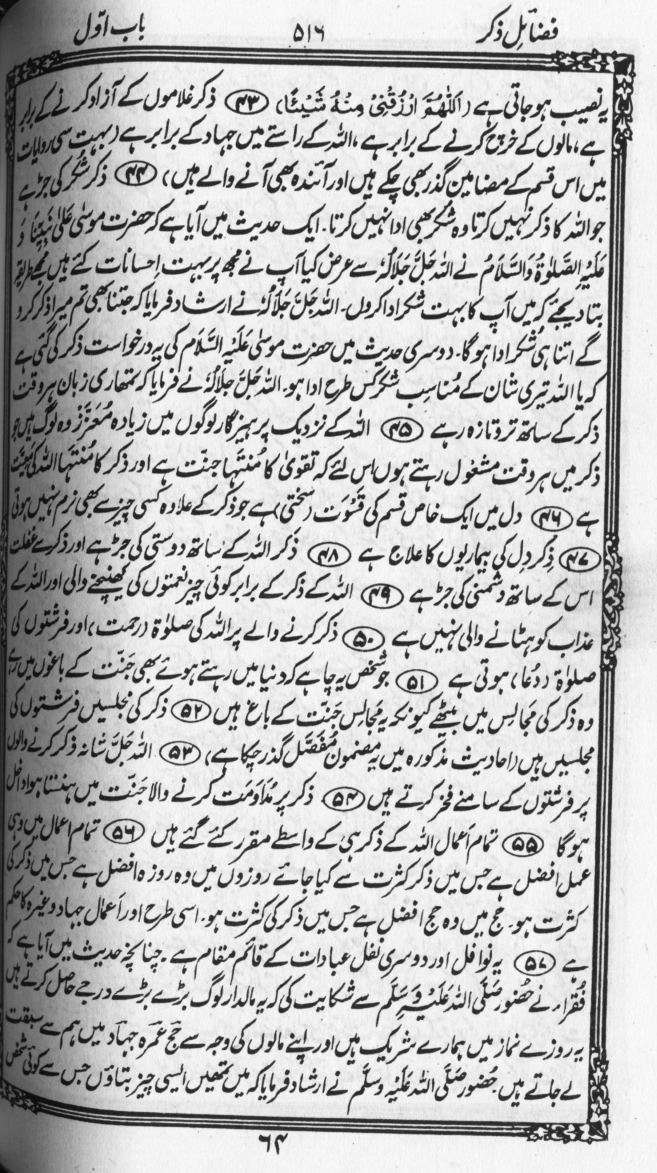 فضائلِ ذکر ۵۱۶ باب اوّل
یہ نصیب ہوجاتی ہے (اَللّٰهُمَّ ارْزُقْنِیْ مِنْهُ شَیْئًا) ۴۳ ذکر غلاموں کے آزاد کرنے کے برابر
ہے، مالوں کے خرچ کرنے کے برابر ہے، اللہ کے راستے میں جہاد کے برابر ہے (بہت سی روایات
میں اس قسم کے مضامین گذر بھی چکے ہیں اور آئندہ بھی آنے والے ہیں) ۴۴ ذکر شکر کی جڑ ہے
جو اللہ کا ذکر نہیں کرتا وہ شکر بھی ادا نہیں کرتا۔ ایک حدیث میں آیا ہے کہ حضرت موسٰی عَلٰی نَبِیِّنَا وَ
عَلَیْہِ الصَّلوٰۃُ وَالسَّلَامُ نے اللہ جَلَّ جَلَالُہٗ سے عرض کیا آپ نے مجھ پر بہت احسانات کئے ہیں مجھے طریقہ
بتا دیجئے کہ میں آپ کا بہت شکر ادا کروں۔ اللہ جَلَّ جَلَالُہٗ نے ارشاد فرمایا کہ جتنا بھی تم میرا ذکر کرو
گے اتنا ہی شکر ادا ہوگا۔ دوسری حدیث میں حضرت موسیٰ عَلَیْہِ السَّلَام کی یہ درخواست ذکر کی گئی ہے
کہ یا اللہ تیری شان کے مُناسِب شکر کس طرح ادا ہو۔ اللہ جَلَّ جَلَالُہٗ نے فرمایا کہ تمھاری زبان ہر وقت
ذکر کے ساتھ تر و تازہ رہے ۴۵ اللہ کے نزدیک پرہیزگار لوگوں میں زیادہ مُعَزَّز وہ لوگ ہیں جو
ذکر میں ہر وقت مشغول رہتے ہوں اس لئے کہ تقویٰ کا مُنتہا جنّت ہے اور ذکر کا مُنتہا اللہ کی مَعِیَّت
ہے ۴۶ دل میں ایک خاص قسم کی قَسْوَت (سختی) ہے جو ذکر کے علاوہ کسی چیز سے بھی نرم نہیں ہوتی
۴۷ ذِکر دِل کی بیماریوں کا علاج ہے ۴۸ ذکر اللہ کے ساتھ دوستی کی جڑ ہے اور ذکر سے غفلت
اس کے ساتھ دشمنی کی جڑ ہے ۴۹ اللہ کے ذکر کے برابر کوئی چیز نعمتوں کی کھینچنے والی اور اللہ کے
عذاب کو ہٹانے والی نہیں ہے ۵۰ ذکر کرنے والے پر اللہ کی صلوٰۃ (رحمت)، اور فرشتوں کی
صلوٰۃ (دُعا) ہوتی ہے ۵۱ جو شخص یہ چاہے کہ دنیا میں رہتے ہوئے بھی جنّت کے باغوں میں رہے
وہ ذکر کی مَجالِس میں بیٹھے کیونکہ یہ مَجالِس جنّت کے باغ ہیں ۵۲ ذکر کی مجلسیں فرشتوں کی
مجلسیں ہیں (احادیث مذکورہ میں یہ مضمون مُفَصَّل گذر چکا ہے) ۵۳ اللہ جَلَّ شانہ ذکر کرنے والوں
پر فرشتوں کے سامنے فخر کرتے ہیں ۵۴ ذکر پر مُداوَمَت کرنے والا جنّت میں ہنستا ہوا داخل
ہوگا ۵۵ تمام اَعمال اللہ کے ذکر ہی کے واسطے مقرر کئے گئے ہیں ۵۶ تمام اعمال میں وہی
عمل افضل ہے جس میں ذکر کثرت سے کیا جائے روزوں میں وہ روزہ افضل ہے جس میں ذکر کی
کثرت ہو۔ حج میں وہ حج افضل ہے جس میں ذکر کی کثرت ہو۔ اسی طرح اور اَعمال جہاد وغیرہ کا حکم
ہے ۵۷ یہ نوافل اور دوسری نفل عبادات کے قائم مقام ہے۔ چنانچہ حدیث میں آیا ہے کہ
فُقَراء نے حضُور صَلَّی اللہُ عَلَیْہِ وَسَلَّم سے شکایت کی کہ یہ مالدار لوگ بڑے بڑے درجے حاصل کرتے ہیں
یہ روزے نماز میں ہمارے شریک ہیں اور اپنے مالوں کی وجہ سے حج عمرہ جہاد میں ہم سے سبقت
لے جاتے ہیں۔ حُضور صَلَّی اللہُ عَلَیْہِ وسلَّم نے ارشاد فرمایا کہ میں تمھیں ایسی چیز بتاؤں جس سے کوئی شخص
۶۴